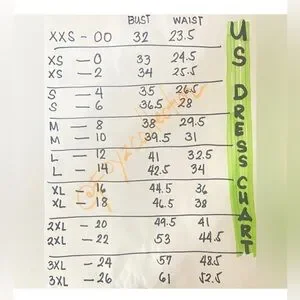 BUST WAIST
XXS - 00 32 23.5
XS - 0 33 24.5
XS - 2 34 25.5
S - 4 35 26.5
S - 6 36.5 28
M - 8 38 29.5
M - 10 39.5 31
L - 12 41 32.5
L - 14 42.5 34
XL - 16 44.5 36
XL - 18 46.5 38
2XL - 20 49.5 41
2XL - 22 53 44.5
3XL - 24 57 48.5
3XL - 26 61 52.5
US DRESS CHART